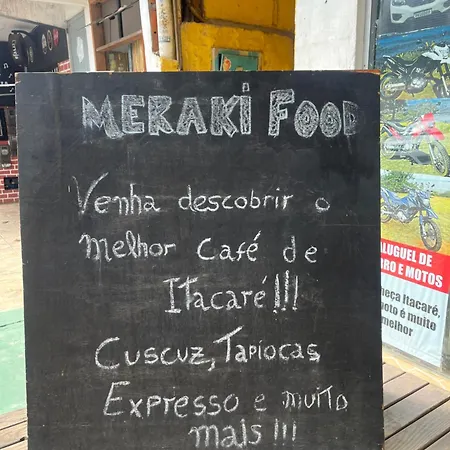 MERAKI FOOD
Venha descobrir o
melhor café de
Itacaré!!!
Cuscuz, Tapiocas
Expresso e muito
mais!!!
ALUGUEL DE
RO E MOTOS
eça Itacaré,
oto é muito
melhor